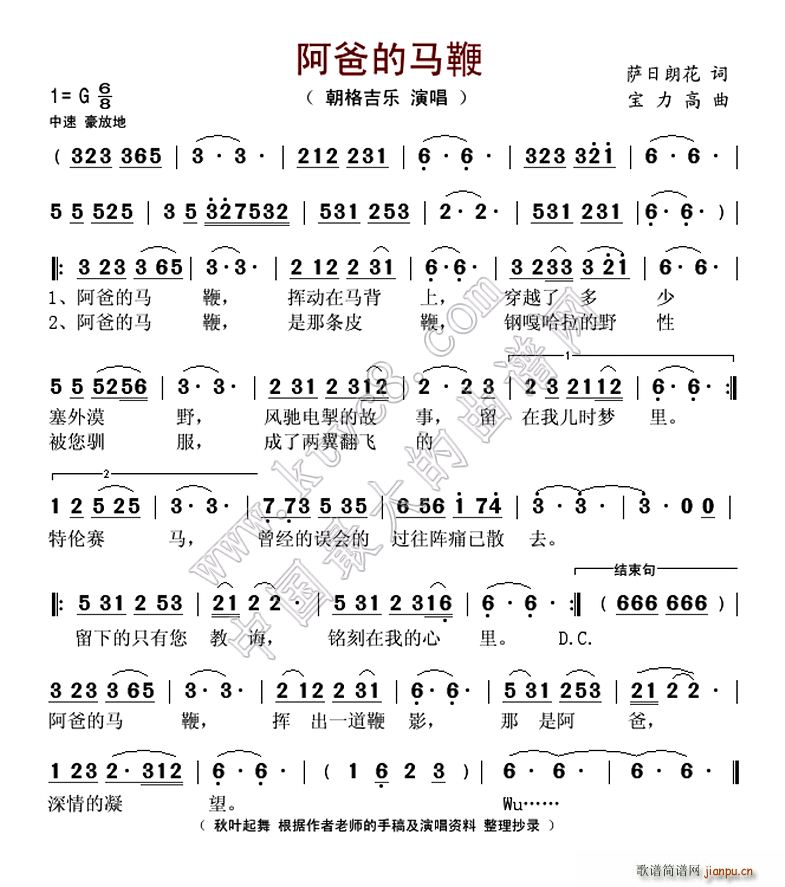 阿爸的马鞭
( 朝格吉乐 演唱 )
萨日朗花 词
宝 力 高 曲
1= G 6/8
中速 豪放地
( 323 365 | 3· 3· | 212 231 | 6· 6· | 323 321 | 6· 6· |
5 5 525 | 3 5 327532 | 531 253 | 2· 2· | 531 231 | 6· 6· ) |
‖: 3 23 3 65 | 3· 3· | 2 12 2 31 | 6· 6· | 3 233 3 21 | 6· 6· |
1、阿爸的马 鞭, 挥动在马背 上, 穿越了 多 少
2、阿爸的马 鞭, 是那条皮 鞭, 钢嘎哈拉的野 性
1
5 5 5256 | 3· 3· | 2 31 2 312 | 2· 2 3 | 2 3 2112 | 6· 6· :‖
塞外漠 野, 风驰电掣的故 事, 留 在我儿时梦 里。
被您驯 服, 成了两翼翻飞 的
2
1 2 5 25 | 3· 3· | 7 73 5 35 | 6 56 1 74 | 3· 3· | 3· 0 0 |
特伦赛 马, 曾经的误会的 过往阵痛已散 去。
结束句
‖: 5 31 2 53 | 21 2 2· | 5 31 2 316 | 6· 6· :‖ ( 666 666 ) |
留下的只有您 教 诲, 铭刻在我的心 里。 D.C.
3 23 3 65 | 3· 3· | 2 12 2 31 | 6· 6· | 5 31 2 53 | 21 2 2· |
阿爸的马 鞭, 挥 出一道鞭 影, 那 是阿 爸,
1 23 2· 312 | 6· 6· | ( 1 6 2 3 ) | 6· 6· | 6· 6· ‖
深情的凝 望。 Wu……
( 秋叶起舞 根据作者老师的手稿及演唱资料 整理抄录 )
www.ktvc8.com
中国最大的曲谱网
歌谱简谱网 jianpu.cn